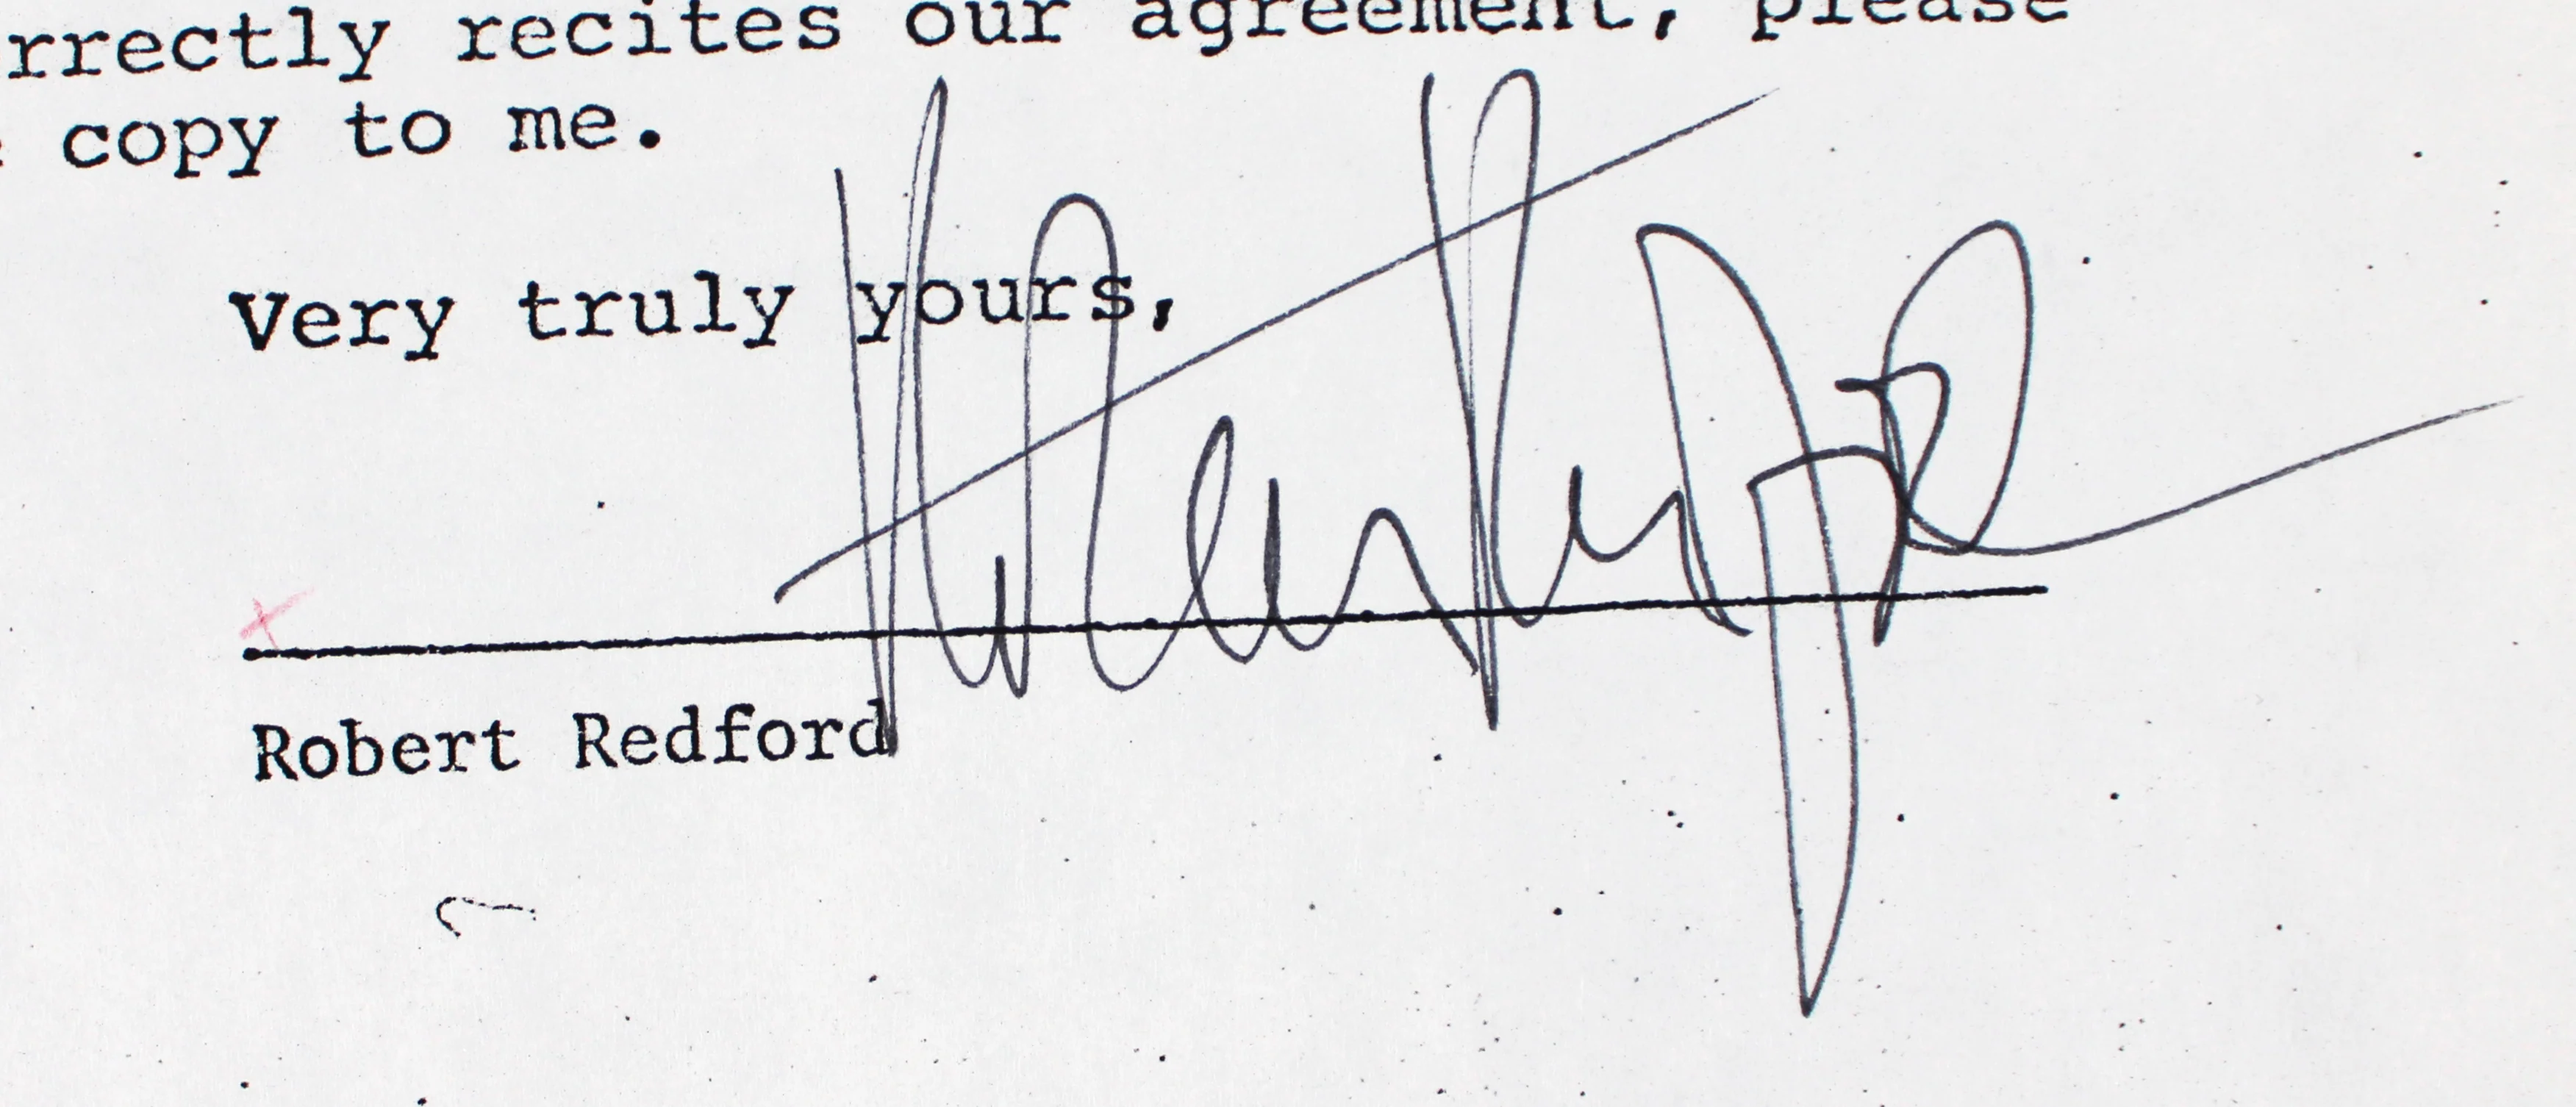 rrectly recites our agreement, please
copy to me.
Very truly yours,
Robert Redford